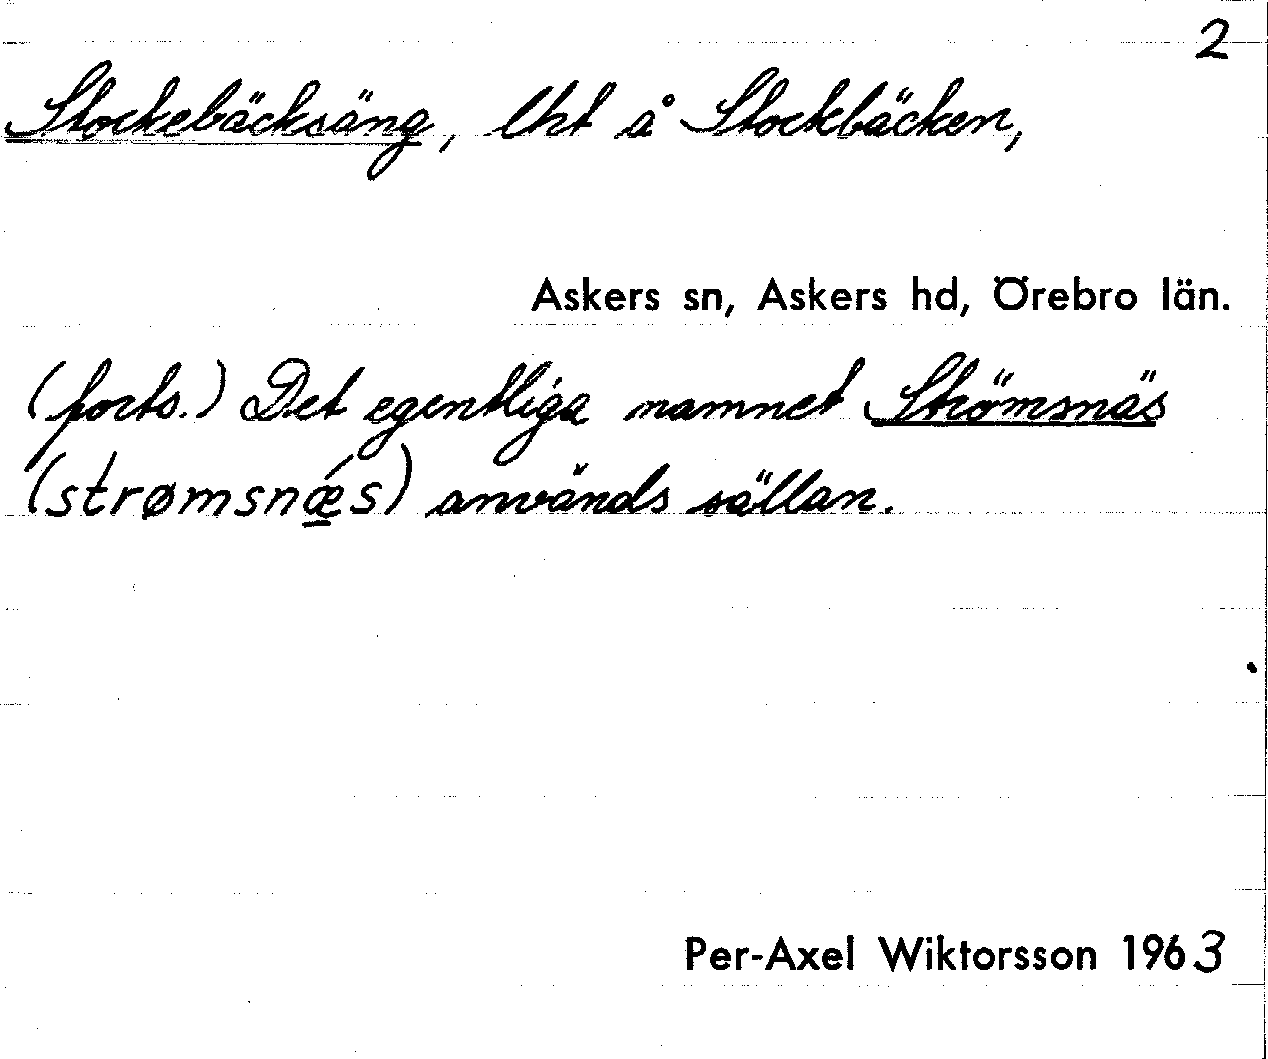 2
Stockebäcksäng, lht å Stockbäcken,
Askers sn, Askers hd, Örebro län.
(forts.) Det egentliga namnet Strömsnäs
(strømsnǽs) används sällan.
Per-Axel Wiktorsson 1963